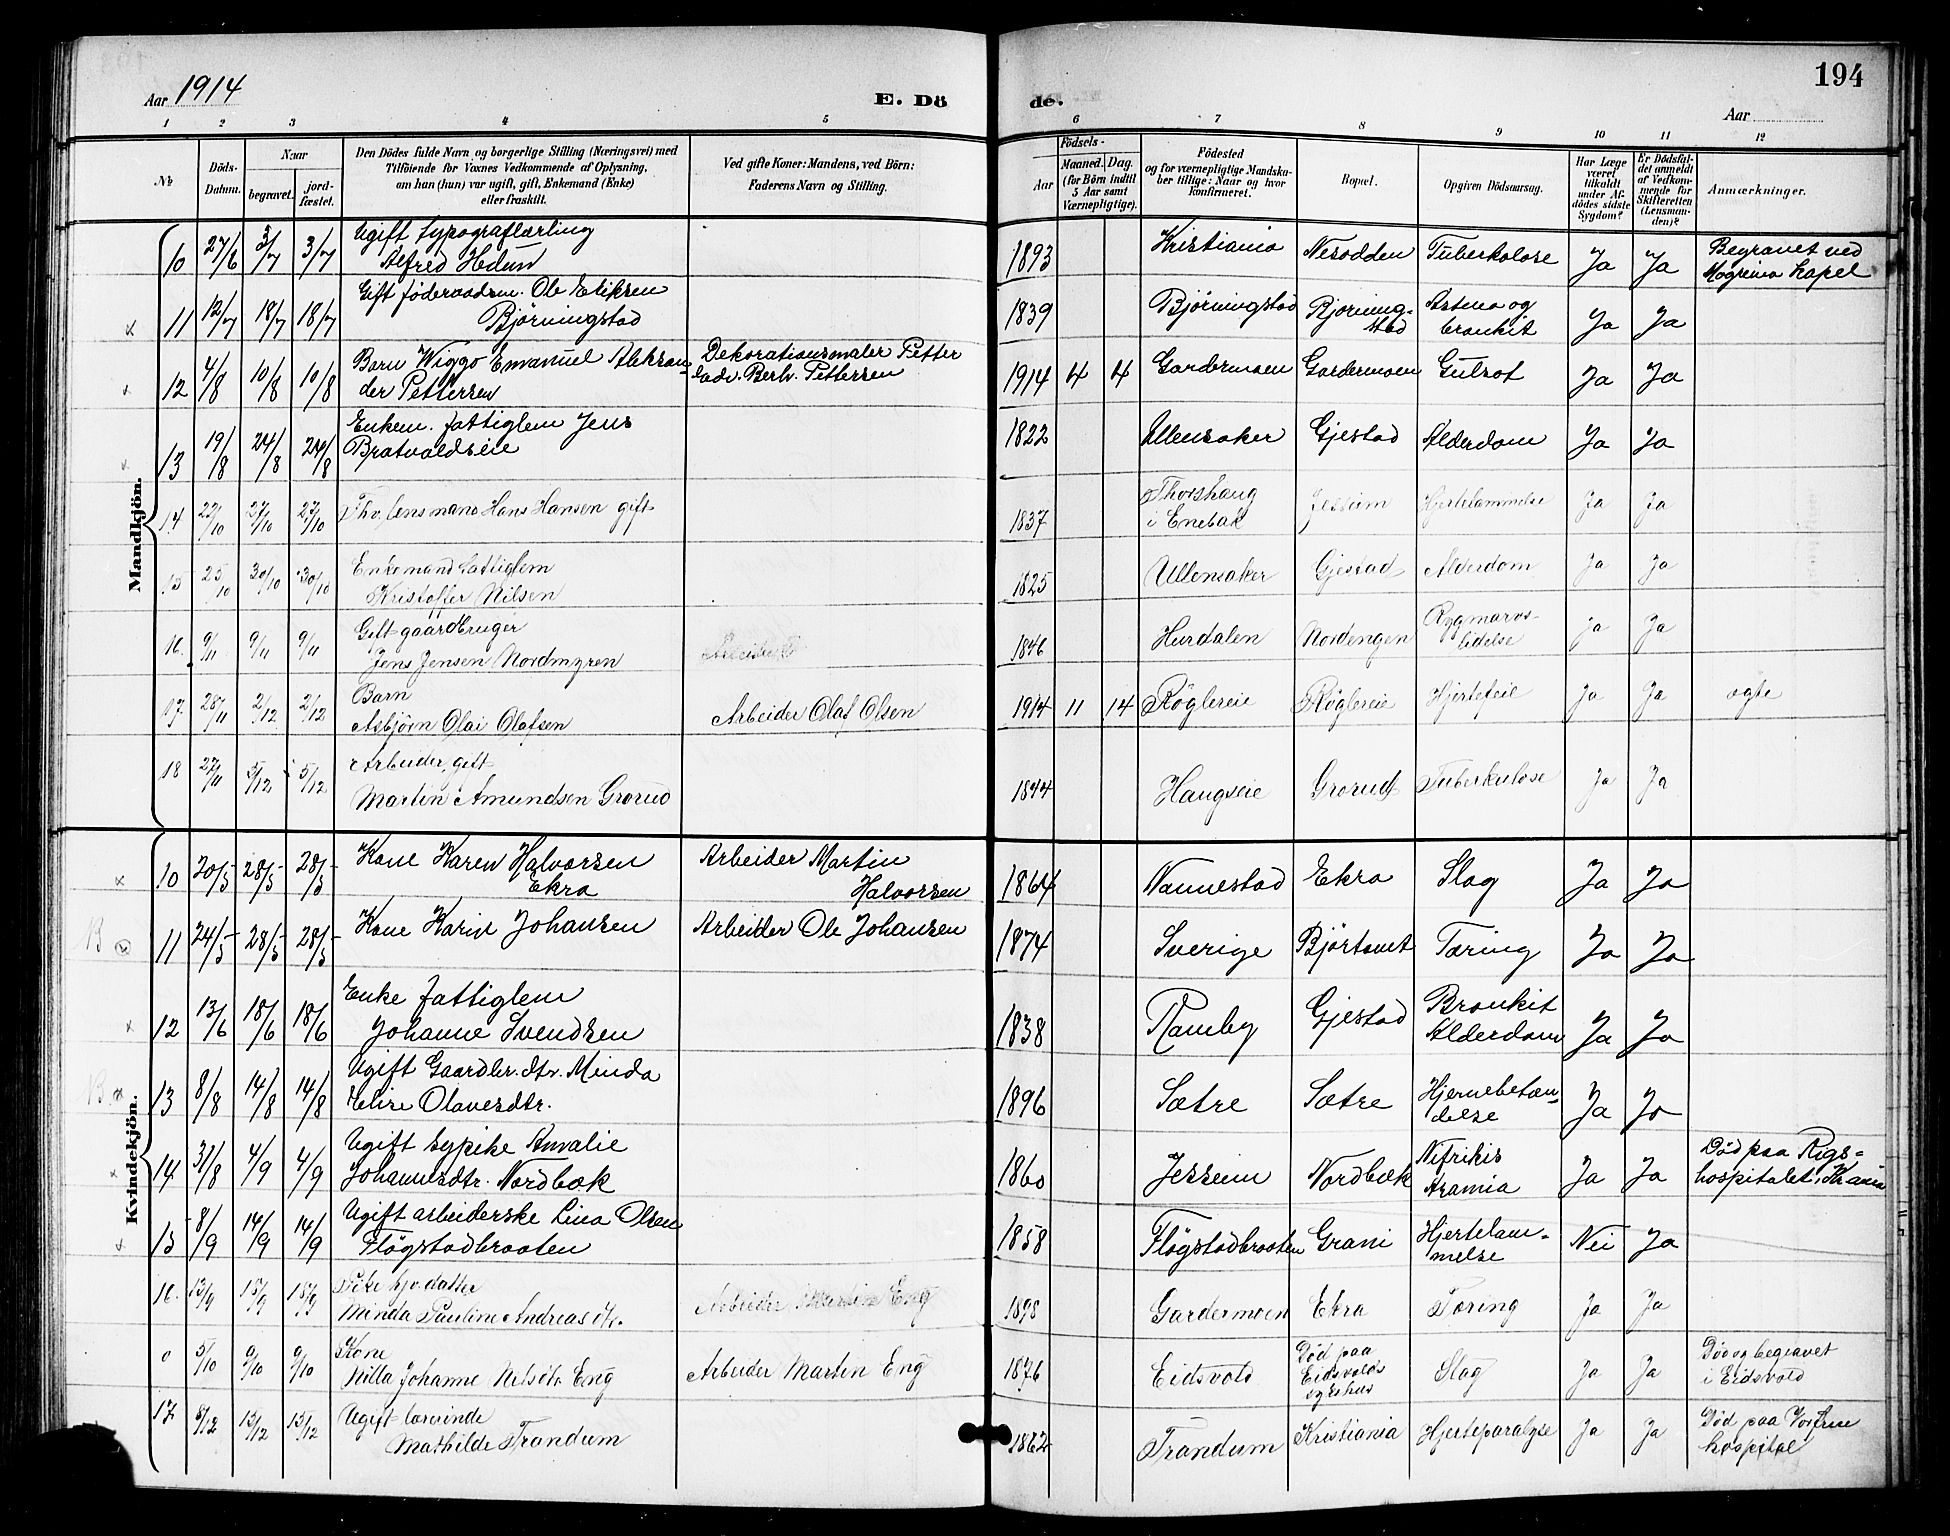 Aar 1914
E. Dö
de.
Aar
194
1 2 3 4 5 6 7 8 9 10 11 12
№
Döds-Datum.
Naar begravet.
jord-fæstet.
Den Dödes fulde Navn og borgerlige Stilling (Næringsvei) med
Tilföiende for Voxnes Vedkommende af Oplysning,
om han (hun) var ugift, gift, Enkemand (Enke)
eller fraskilt.
Ved gifte Koner: Mandens, ved Börn:
Faderens Navn og Stilling.
Födsels-
Aar
Maaned. Dag.
(for Börn indtil
5 Aar samt
Værnepligtige).
Födested
og for værnepligtige Mandska-
ber tillige: Naar og hvor
konfirmeret.
Bopæl.
Opgiven Dödsaarsag.
Har Læge
været
tilkaldt
under Af-
dödes sidste
Sygdom?
Er Dödsfal-
det anmeldt
af Vedkom-
mende for
Skifteretten
(Lensman-
den)?
Anmærkninger.
Mandkjön.
10 27/6 3/7 3/7 Ugift typograflærling
Alfred Hedum 1893 Kristiania Nesodden Tuberkolose Ja Ja Begravet ved
Mogreina kapel
11 12/7 18/7 18/7 Gift föderaadsm. Ole Eriksen
Björningstad 1839 Björningstad Bjorning-
stad Astma og
bronkit Ja Ja
12 4/8 10/8 10/8 Barn Wiggo Emanuel Aleksan-
der Pettersen Dekorationsmaler Petter
Edv. Berh. Pettersen 1914 4 4 Gardermoen Gardermoen Gulsot Ja Ja
13 19/8 24/8 24/8 Enkem. fattiglem Jens
Bratvoldseie 1822 Ullensaker Gjestad Alderdom Ja Ja
14 22/10 27/10 27/10 Fhv. lensmand Hans Hansen gift 1837 Thorshaug
i Enebak Jessum Hjertelammelse Ja Ja
15 25/10 30/10 30/10 Enkemand fattiglem
Kristoffer Nilsen 1825 Ullensaker Gjestad Alderdom Ja Ja
16. 9/11 9/11 9/11 Gift gaardbruger
Jens Jensen Nordmyren Arbeider 1846 Hurdalen Nordengen Rygmarvs-
lidelse ja Ja
17. 28/11 2/12 2/12 Barn
Asbjörn Olai Olafsen Arbeider Olaf Olsen 1914 11 14 Röglereie Röglereie Hjertefeil Ja Ja ægte
18 27/11 5/12 5/12 Arbeider, gift
Martin Amundsen Grorud 1844 Haugseie Grorud Tuberkulose Ja Ja
Kvindekjön.
10 20/5 28/5 28/5 Kone Karen Halvorsen
Ekra Arbeider Martin
Halvorsen 1864 Nannestad Ekra Slag Ja Ja
B 11 24/5 28/5 28/5 Kone Karin Johansen Arbeider Ole Johansen 1874 Sverige Björtomt Tæring Ja Ja
12 13/6 18/6 18/6 Enke fattiglem
Johanne Svendsen 1838 Ramby Gjestad Bronkit
Alderdom Ja Ja
B 13 8/8 14/8 14/8 Ugift Gaardbr. dtr. Minda
Elise Olavesdtr. 1896 Sætre Sætre Hjernebetæn-
delse Ja Ja
14 31/8 4/9 4/9 Ugift sypike Amalie
Johannesdtr. Nordbæk 1860 Jessum Nordbæk Nifrikis
Aramia Ja Ja Död paa Rigs-
hospitalet, Kr.ania
15 8/9 14/9 14/9 Ugift arbeiderske Lina Olsen
Flögstadbraaten 1858 Flögstadbraaten Grani Hjertelam-
melse Nei Ja
16. 13/9 18/9 18/9 Pike hjv. datter
Minda Pauline Andreasdtr. Arbeider Martin Eng 1898 Gardermoen Ekra Tæring Ja Ja
0 5/10 9/10 9/10 Kone
Nilla Johanne Nilsdtr Eng Arbeider Martin Eng 1876 Eidsvold Död paa
Eidsvolds
sygehus Slag Ja Ja Död og begravet
i Eidsvold
17 8/12 15/12 15/12 Ugift lærerinde
Mathilde Trandum 1862 Trandum Kristiania Hjerteparalyse Ja Ja Död paa Vorfrue
hospital